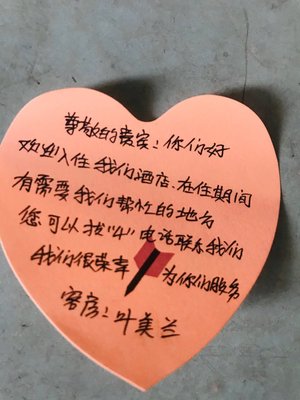 尊敬的贵客：你们好
欢迎入住我们酒店.在住期间
有需要我们帮忙的地方
您可以拨"4"电话联系我们
我们很荣幸 为你们服务
客房：叶美兰